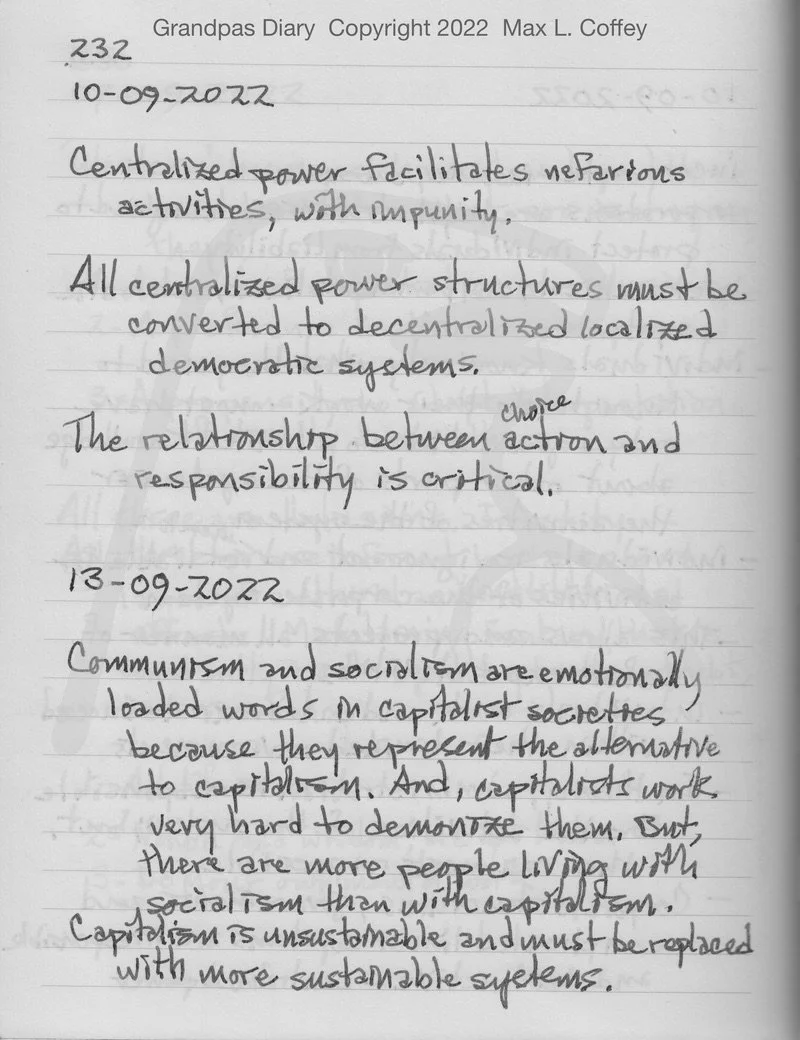 Grandpas Diary Copyright 2022 Max L. Coffey
232
10-09-2022
Centralized power facilitates nefarious
activities, with impunity.
All centralized power structures must be
converted to decentralized localized
democratic systems.
choice
The relationship between action and
responsibility is critical.
13-09-2022
Communism and socialism are emotionally
loaded words in capitalist societies
because they represent the alternative
to capitalism. And, capitalists work
very hard to demonize them. But,
there are more people living with
socialism than with capitalism.
Capitalism is unsustainable and must be replaced
with more sustainable systems.